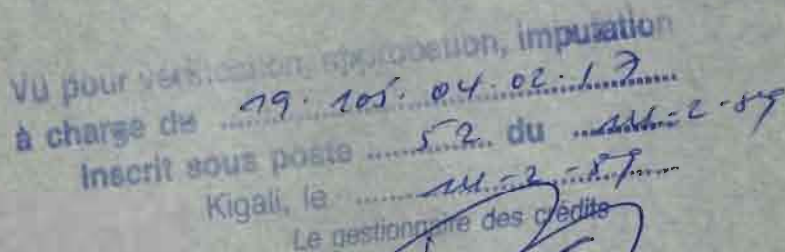 Vu pour vérification, approbation, imputation
à charge de 19. 105. 04. 02. 1.7
Inscrit sous poste 52 du -2-89
Kigali, le -2-89
Le gestionnaire des crédits